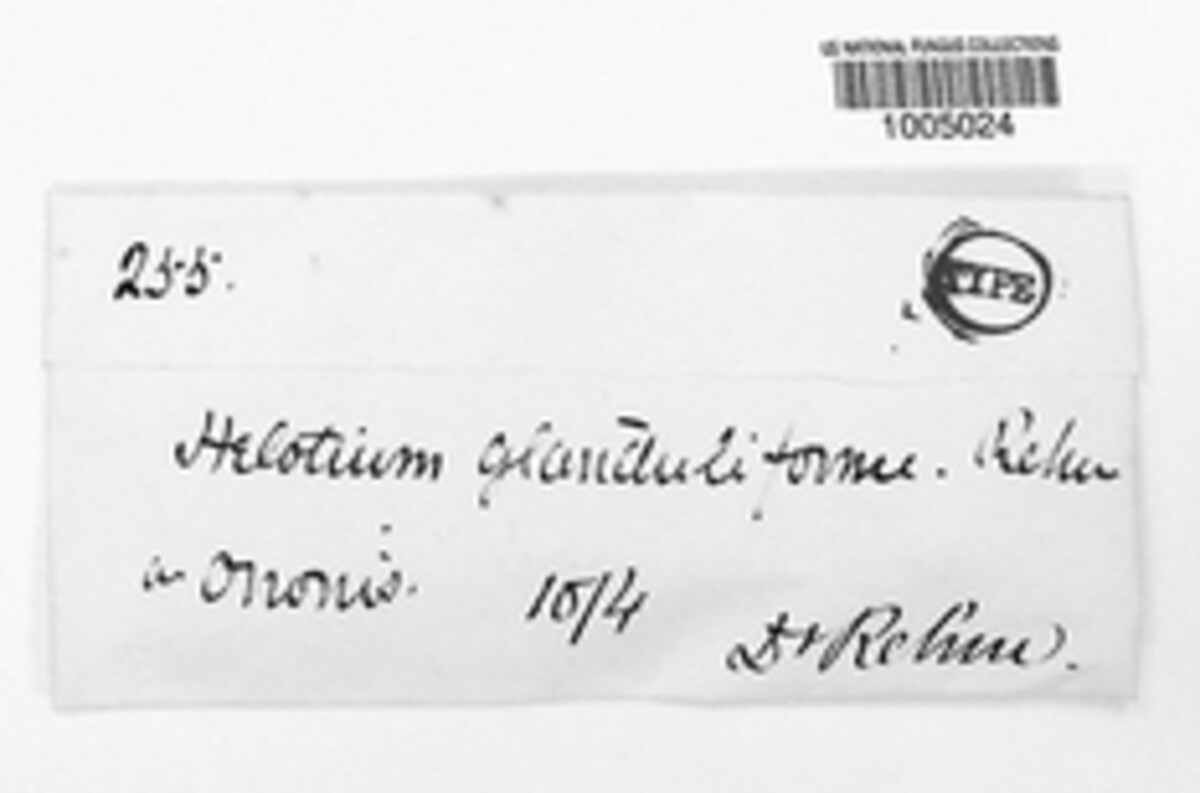 US NATIONAL FUNGUS COLLECTIONS
1005024
255.
TYPE
Helotium glanduliforme. Rehm
a Ononis. 10/4
Dr Rehm.